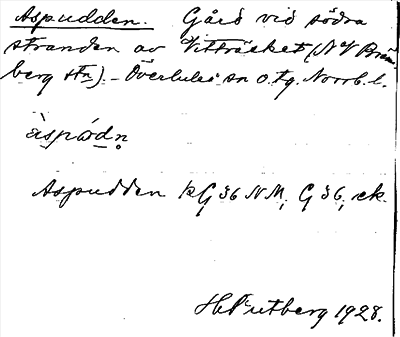 Aspudden. Gård vid södra
stranden av Vitträsket (NV Bränn-
berg stn) – Överluleå sn o. tg. Norrb. l.
àspɷ́dn̥
Aspudden kG 36 NM, G 36, ek.
1928.